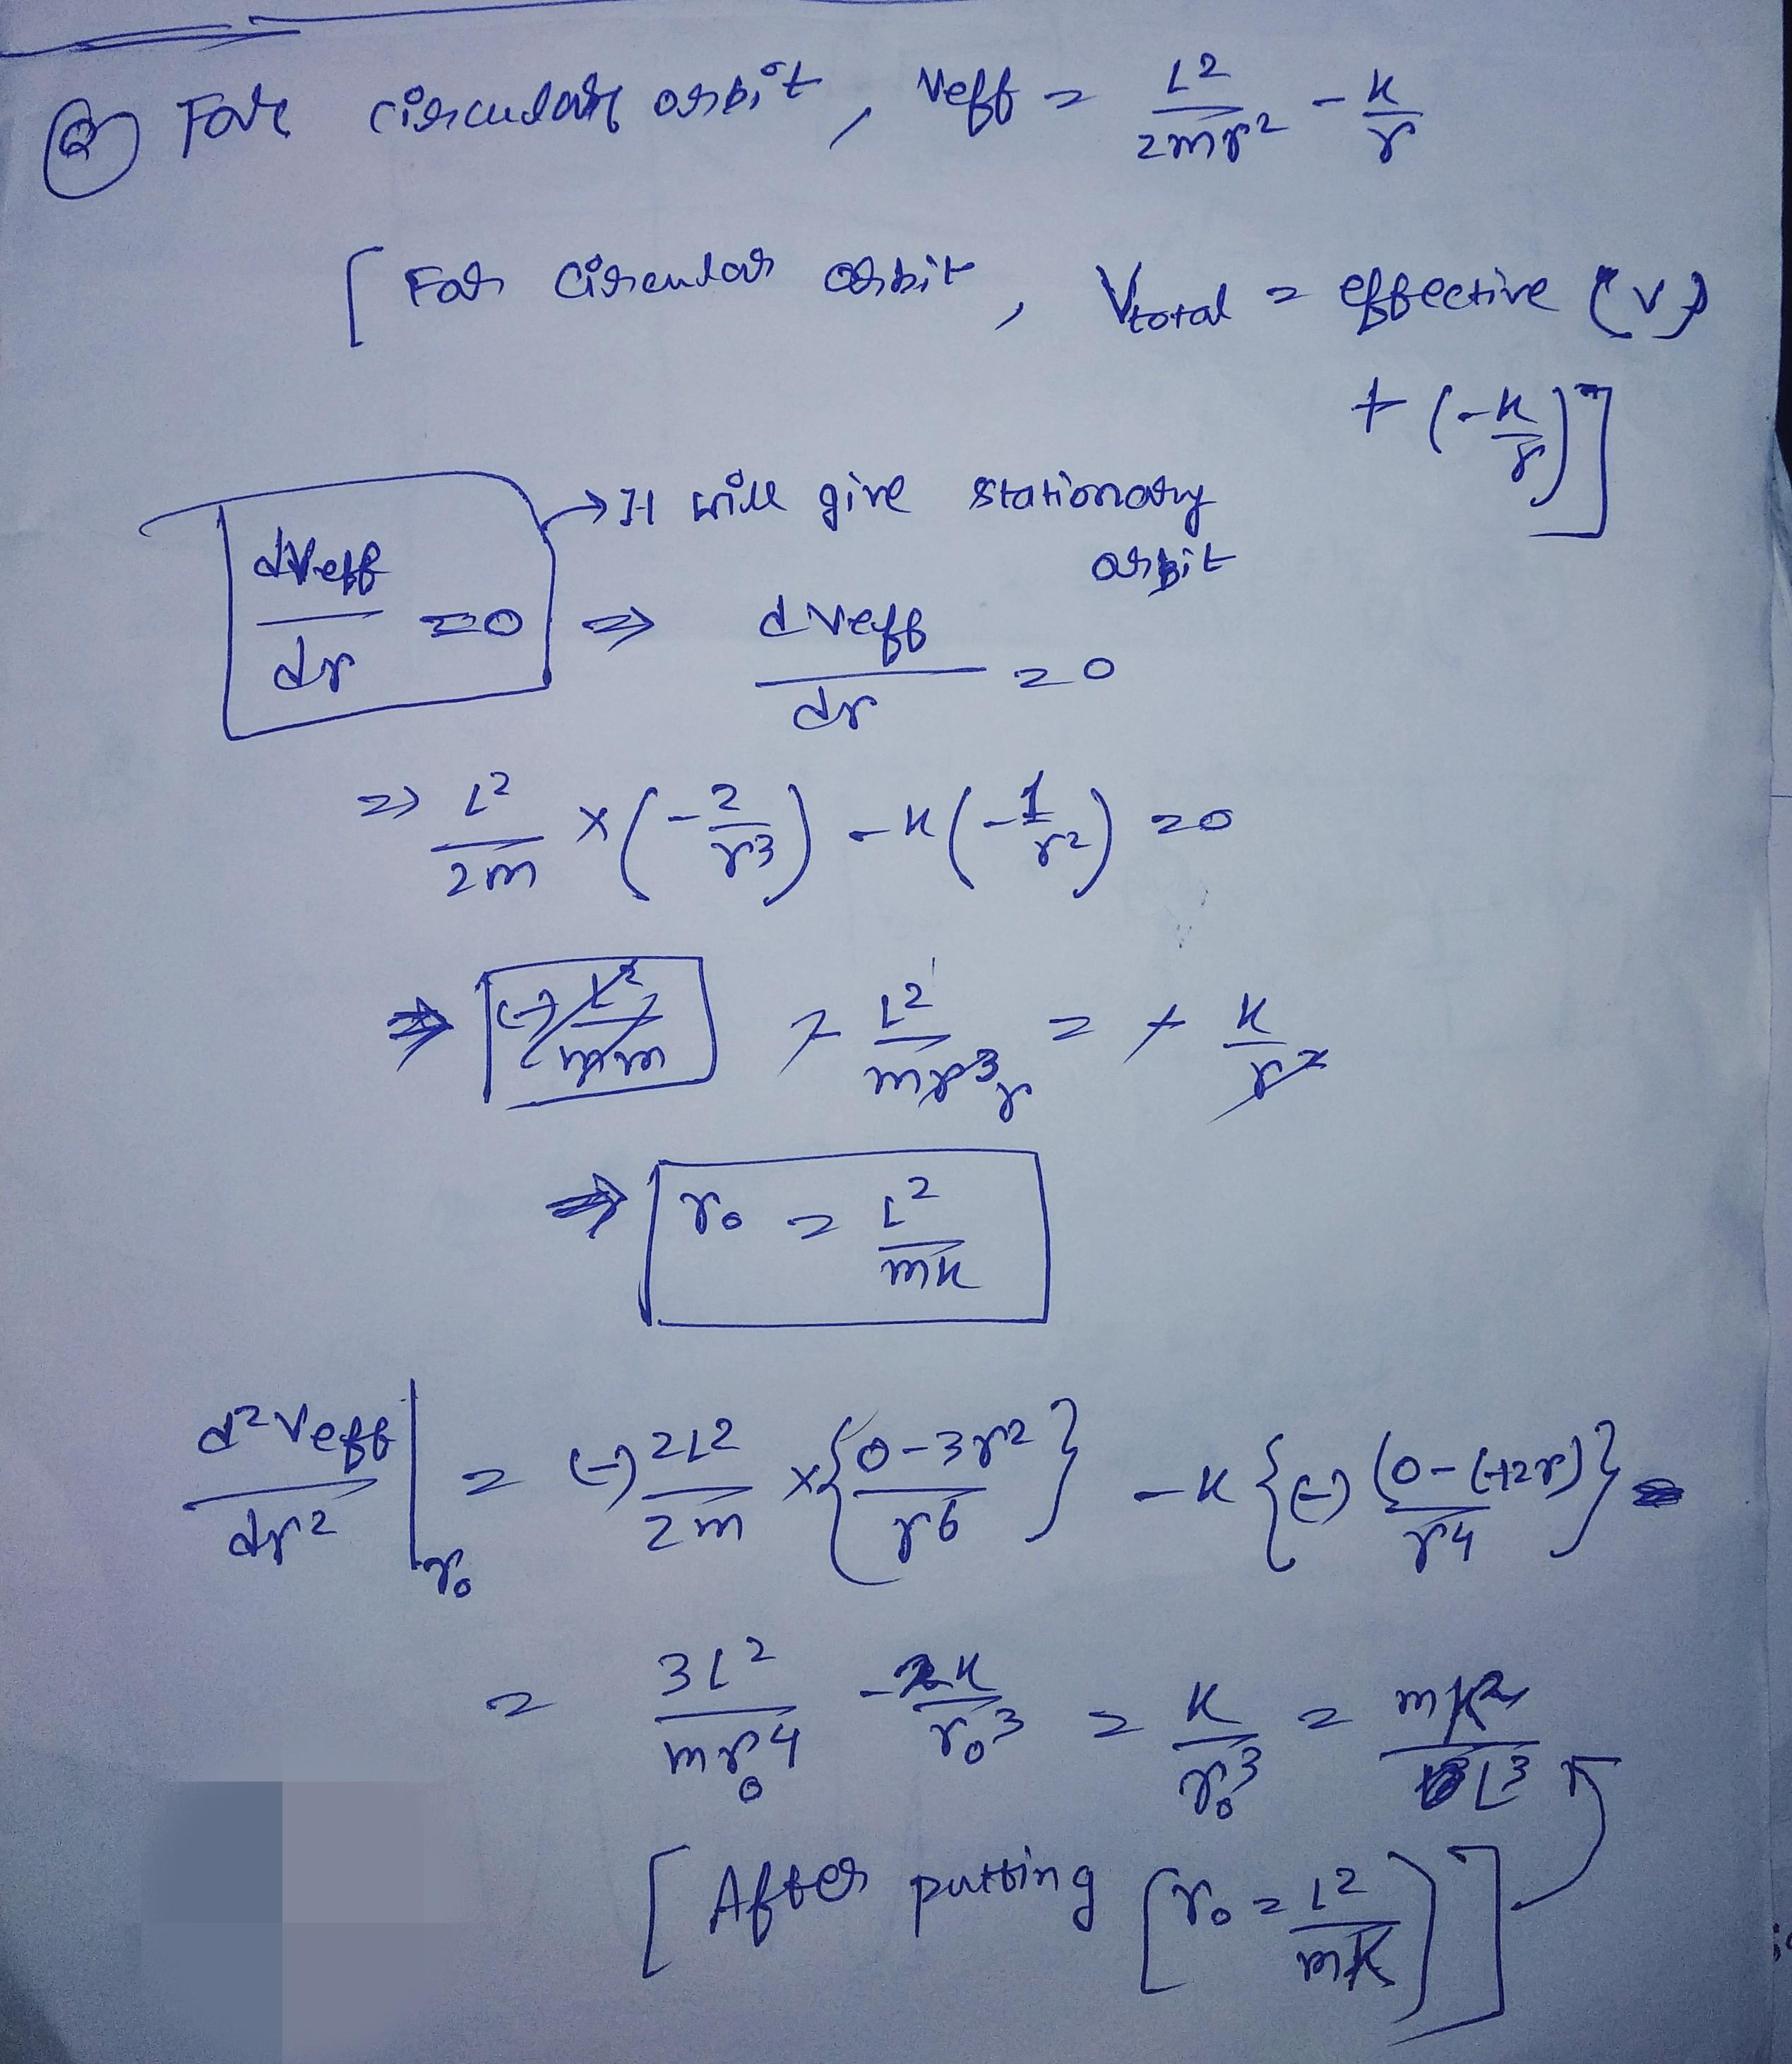 Q For circular orbit, Veff = L²/2mr² - K/r
[For Circular orbit, Vtotal = effective (V)
+ (-K/r)]
→ It will give stationary
orbit
dVeff/dr = 0 ⇒ dVeff/dr = 0
⇒ L²/2m × (-2/r³) - K(-1/r²) = 0
⇒ L²/mr³ = + K/r²
⇒ r₀ = L²/mK
d²Veff/dr² |r₀ = (-) 2L²/2m × {0-3r²/r⁶} - K{(-) (0-(+2r))/r⁴}
= 3L²/mr₀⁴ - 2K/r₀³ = K/r₀³ = mK²/L³
[After putting [r₀ = L²/mK)]